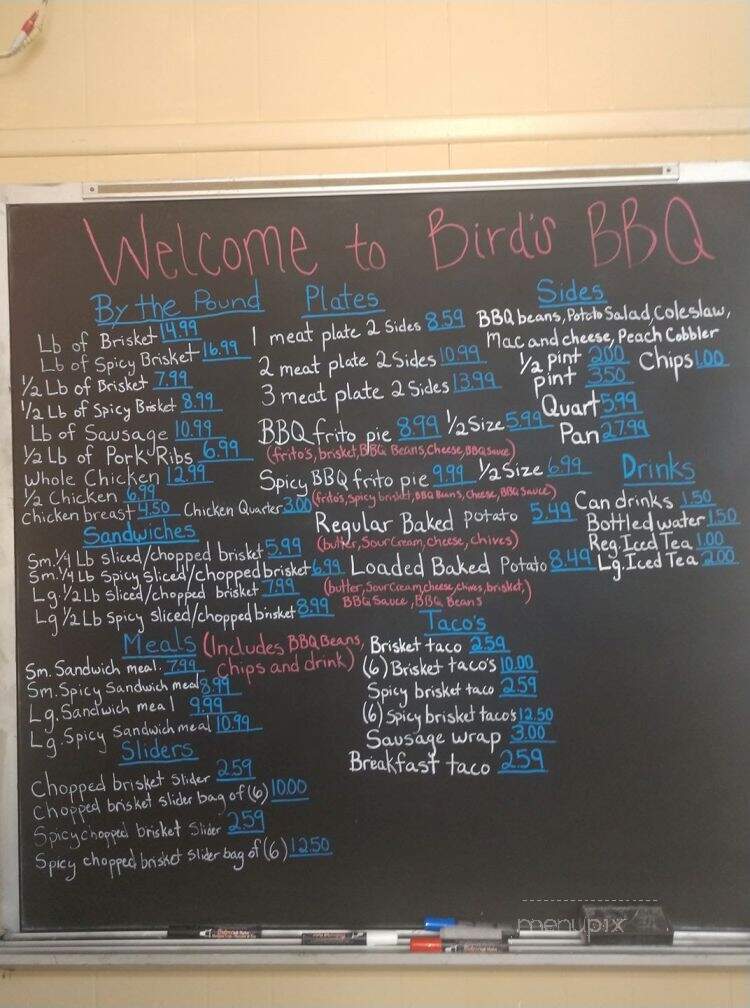 Welcome to Bird's BBQ
By the Pound
Lb of Brisket 14.99
Lb of Spicy Brisket 16.99
1/2 Lb of Brisket 7.99
1/2 Lb of Spicy Brisket 8.99
Lb of Sausage 10.99
1/2 Lb of Pork Ribs 6.99
Whole Chicken 12.99
1/2 Chicken 6.99
Chicken breast 4.50 Chicken Quarter 3.00
Sandwiches
Sm. 1/4 Lb sliced/chopped brisket 5.99
Sm. 1/4 Lb Spicy sliced/chopped brisket 6.99
Lg. 1/2 Lb sliced/chopped brisket 7.99
Lg 1/2 Lb Spicy sliced/chopped brisket 8.99
Meals (Includes BBQ Beans,
chips and drink)
Sm. Sandwich meal. 7.99
Sm. Spicy Sandwich meal 8.99
Lg. Sandwich meal 9.99
Lg. Spicy Sandwich meal 10.99
Sliders
Chopped brisket Slider 2.59
Chopped brisket slider bag of (6) 10.00
Spicy chopped brisket Slider 2.59
Spicy chopped brisket Slider bag of (6) 12.50
Plates
1 meat plate 2 Sides 8.59
2 meat plate 2 Sides 10.99
3 meat plate 2 Sides 13.99
BBQ frito pie 8.99 1/2 Size 5.99
(frito's, brisket, BBQ Beans, Cheese, BBQ Sauce)
Spicy BBQ frito pie 9.99 1/2 Size 6.99
(frito's, Spicy brisket, BBQ Beans, Cheese, BBQ Sauce)
Regular Baked Potato 5.49
(butter, Sour Cream, cheese, chives)
Loaded Baked Potato 8.49
(butter, Sour Cream, cheese, chives, brisket,)
BBQ Sauce, BBQ Beans
Taco's
Brisket taco 2.59
(6) Brisket taco's 10.00
Spicy brisket taco 2.59
(6) Spicy brisket taco's 12.50
Sausage wrap 3.00
Breakfast taco 2.59
Sides
BBQ beans, Potato Salad, Coleslaw,
Mac and cheese, Peach Cobbler
1/2 pint 2.00 Chips 1.00
pint 3.50
Quart 5.99
Pan 27.99
Drinks
Can drinks 1.50
Bottled water 1.50
Reg. Iced Tea 1.00
Lg. Iced Tea 2.00
menupix